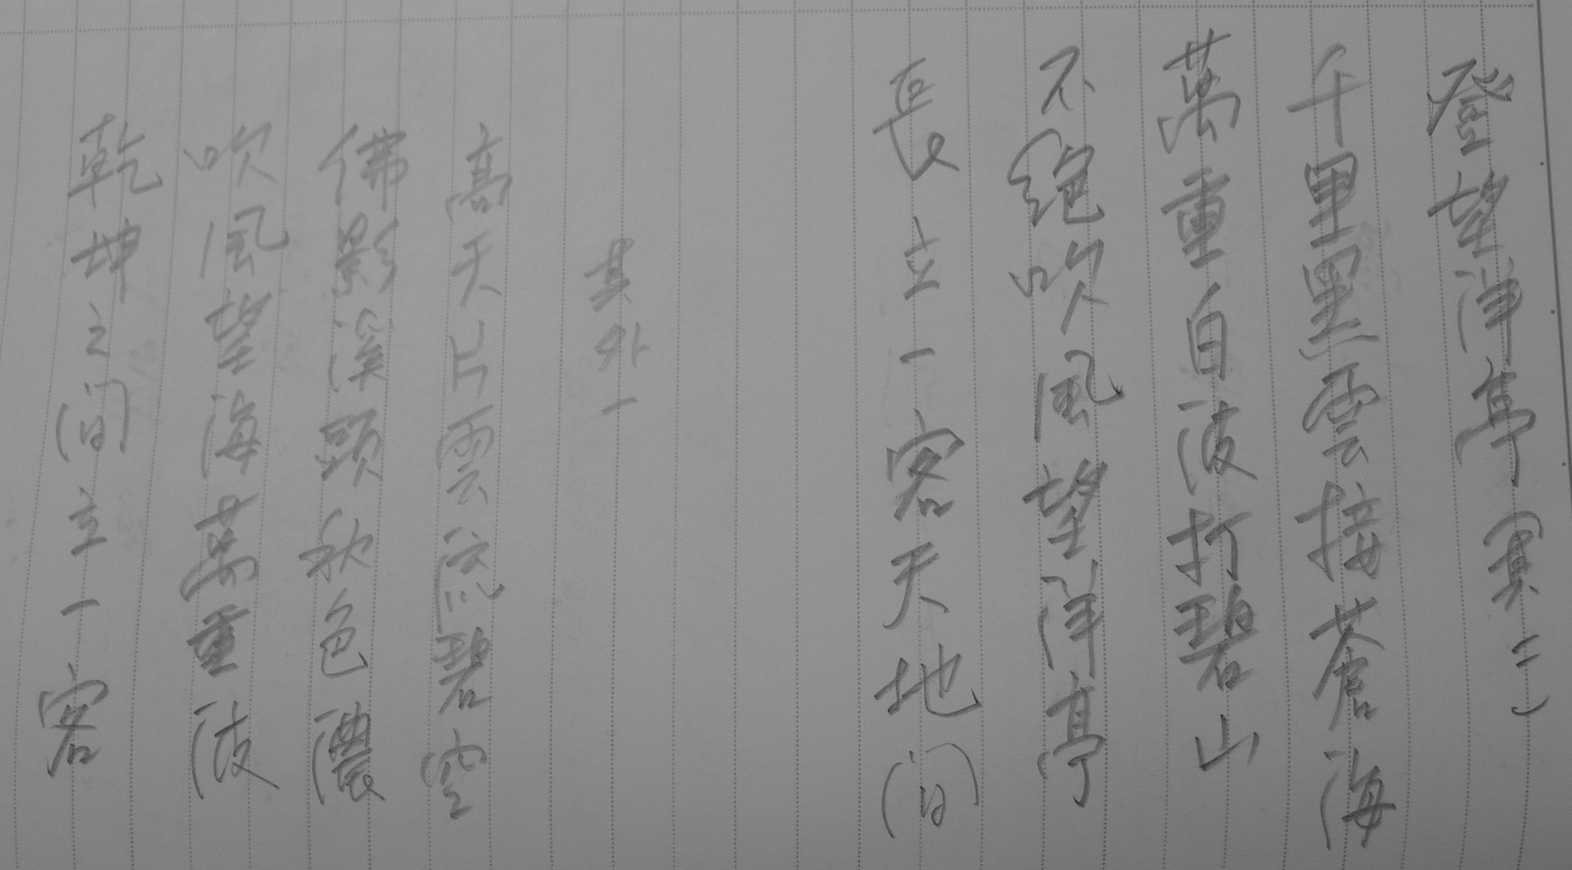 登望洋亭 其二
千里黑雲接蒼海
萬重白波打碧山
不絕吹風望洋亭
長立一客天地間
其外一
高天片雲流碧空
佛影溪頭秋色濃
吹風望海萬重波
乾坤之间立一客